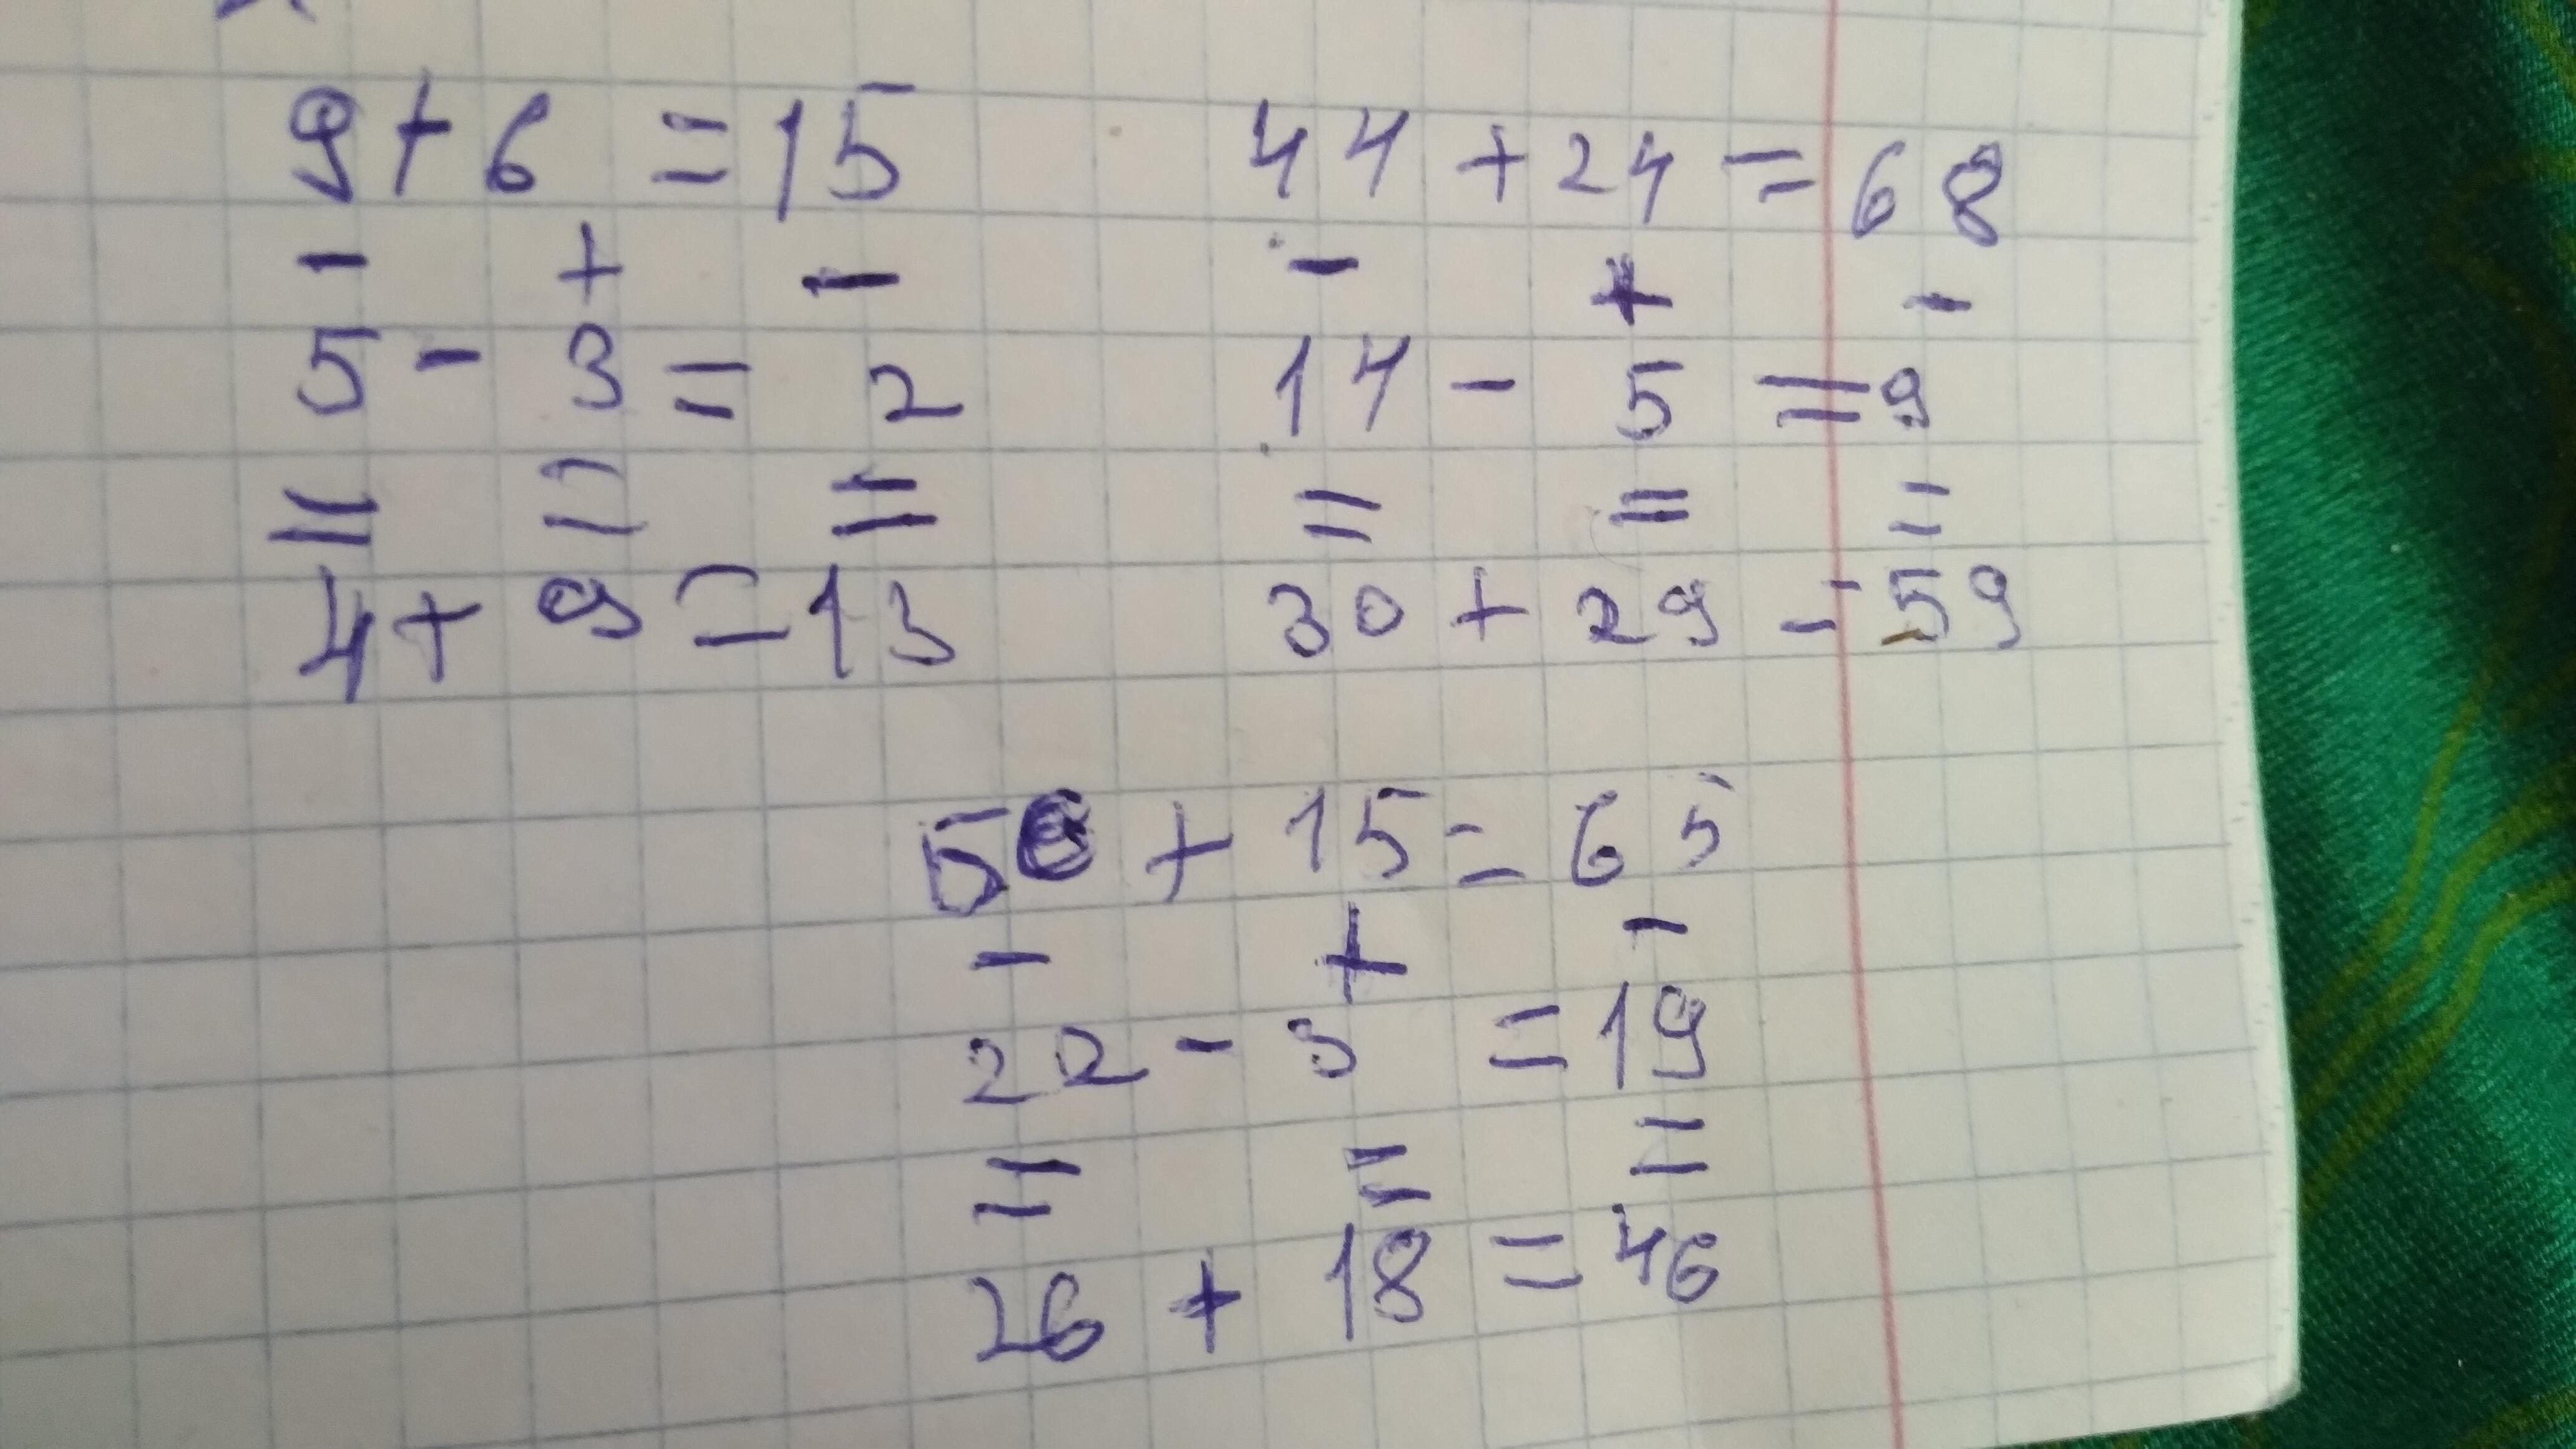 9 + 6 = 15
- + -
5 - 3 = 2
= = =
4 + 9 = 13
44 + 24 = 68
- + -
14 - 5 = 9
= = =
30 + 29 = 59
50 + 15 = 65
- + -
22 - 3 = 19
= = =
26 + 18 = 46